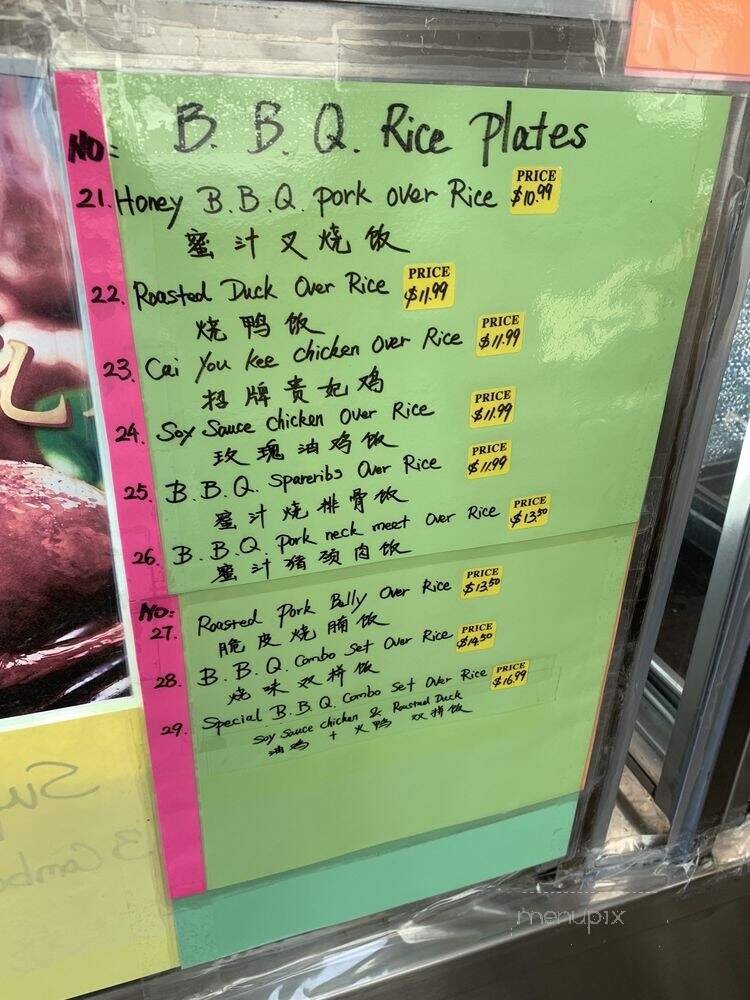 B. B. Q. Rice Plates
NO:
21. Honey B.B.Q. Pork over Rice PRICE $10.99
蜜汁叉烧饭
22. Roasted Duck Over Rice PRICE $11.99
烧鸭饭
23. Cai You Kee Chicken Over Rice PRICE $11.99
招牌贵妃鸡
24. Soy Sauce Chicken Over Rice PRICE $11.99
玫瑰油鸡饭
25. B.B.Q. Spareribs Over Rice PRICE $11.99
蜜汁烧排骨饭
26. B.B.Q. Pork neck meet Over Rice PRICE $13.50
蜜汁猪颈肉饭
NO:
27. Roasted Pork Belly Over Rice PRICE $13.50
脆皮烧腩饭
28. B.B.Q. Combo Set Over Rice PRICE $14.50
烧味双拼饭
29. Special B.B.Q. Combo Set Over Rice PRICE $16.99
Soy Sauce chicken & Roasted Duck
油鸡 + 火鸭 双拼饭
menupix